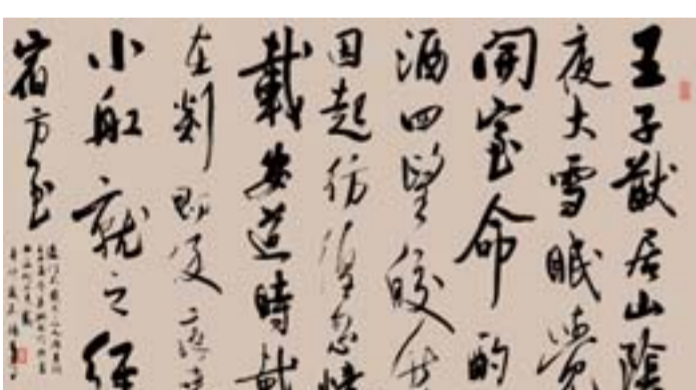 王子猷居山陰
夜大雪眠覺
開室命酌
酒四望皎然
因起彷徨忽憶
戴安道時戴
在剡即便夜
小船就之經
宿方至